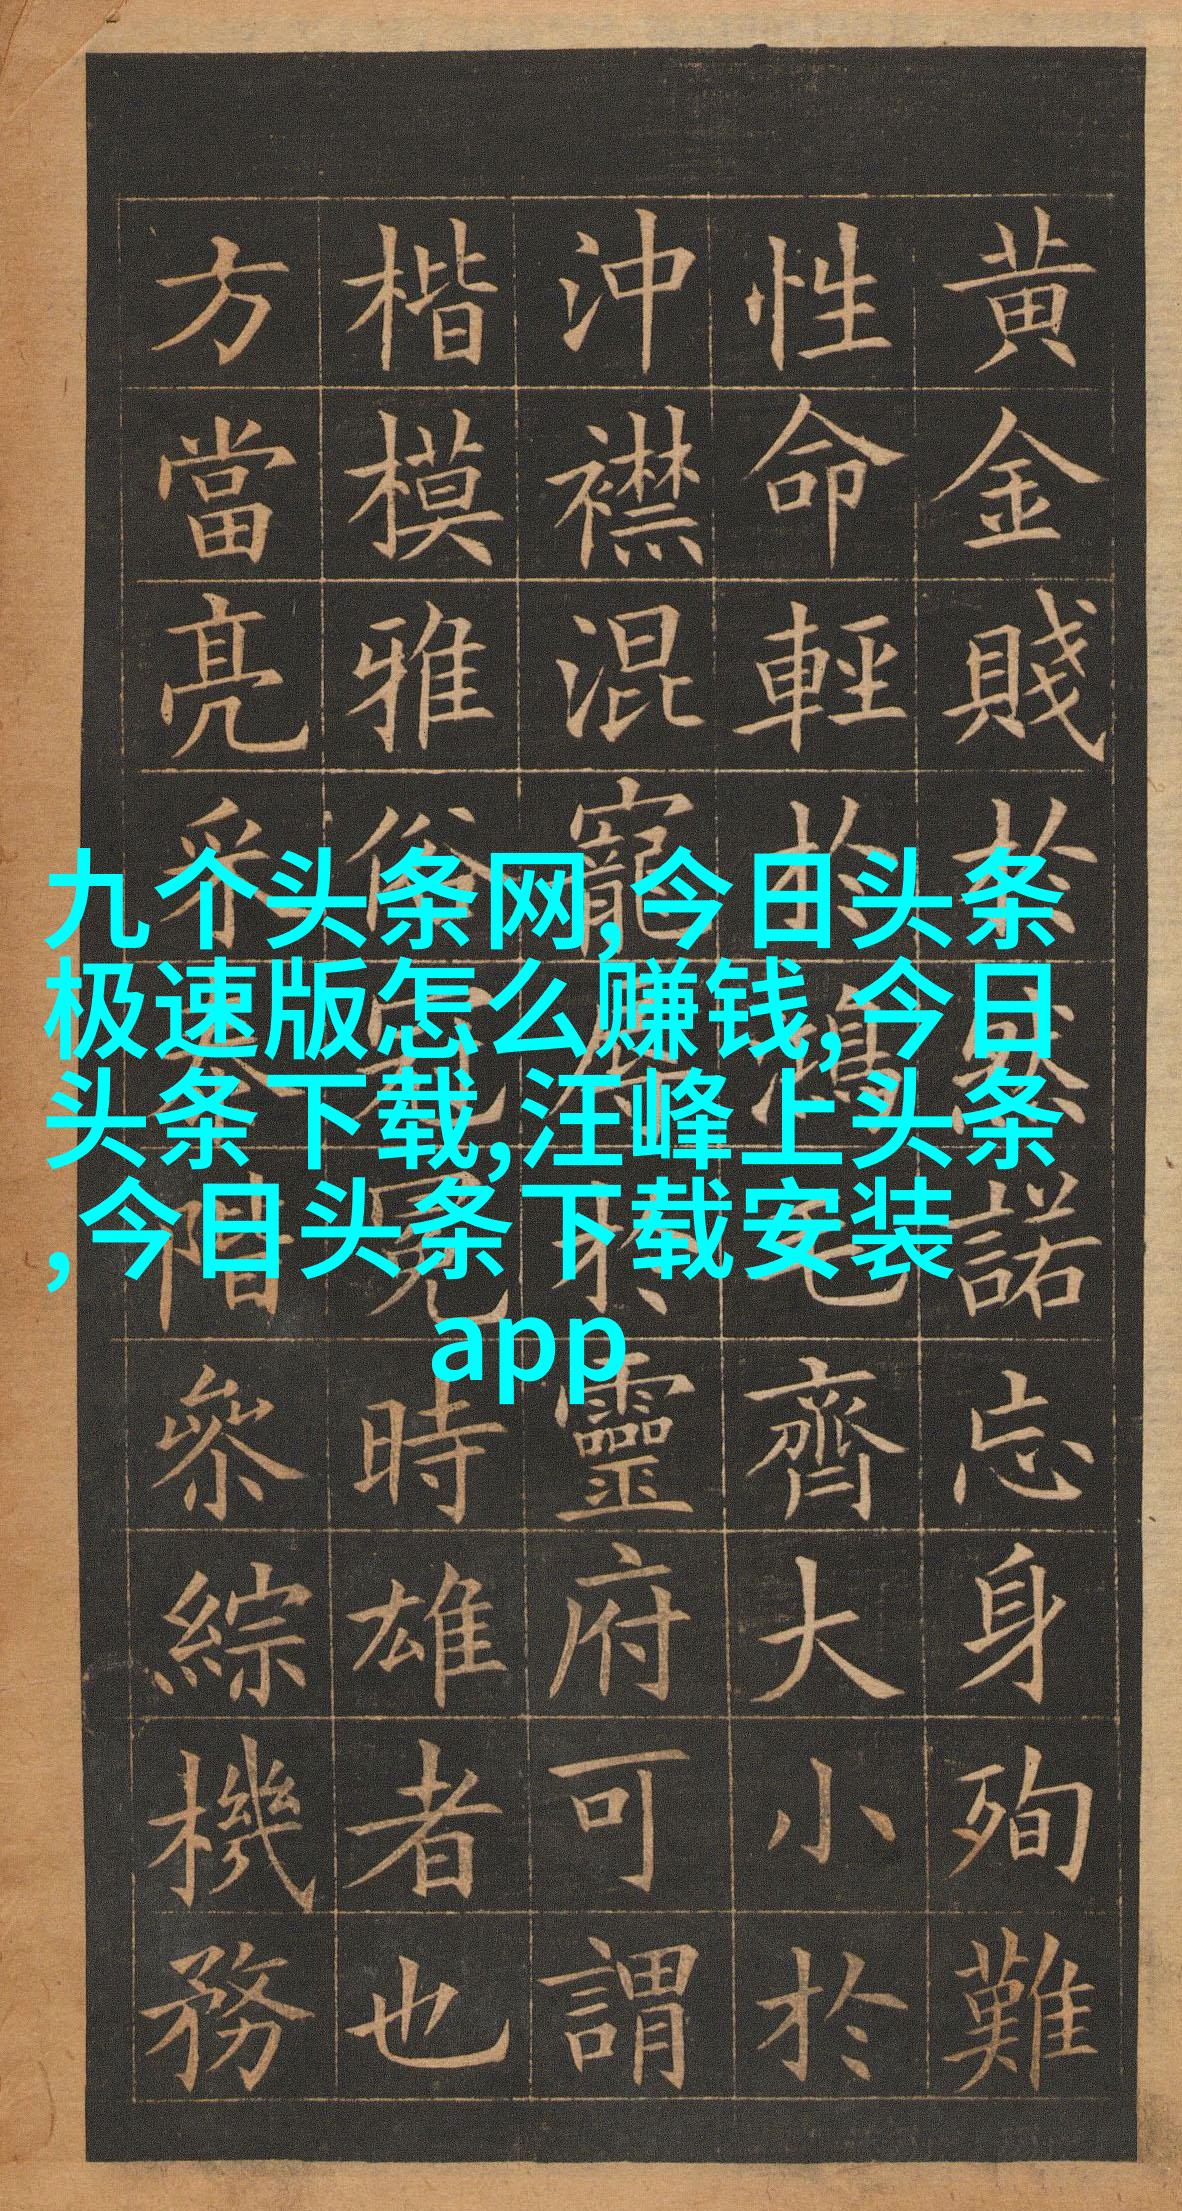 黄金賤於然諾忘身殉難
性命輕於鴻毛齊大小於
沖襟混寵辱於靈府可謂
楷模雅俗冠冕時雄者也
方當亮采階參綜機務
九个头条网,今日头条
极速版怎么赚钱,今日
头条下载,汪峰上头条
,今日头条下载安装
app